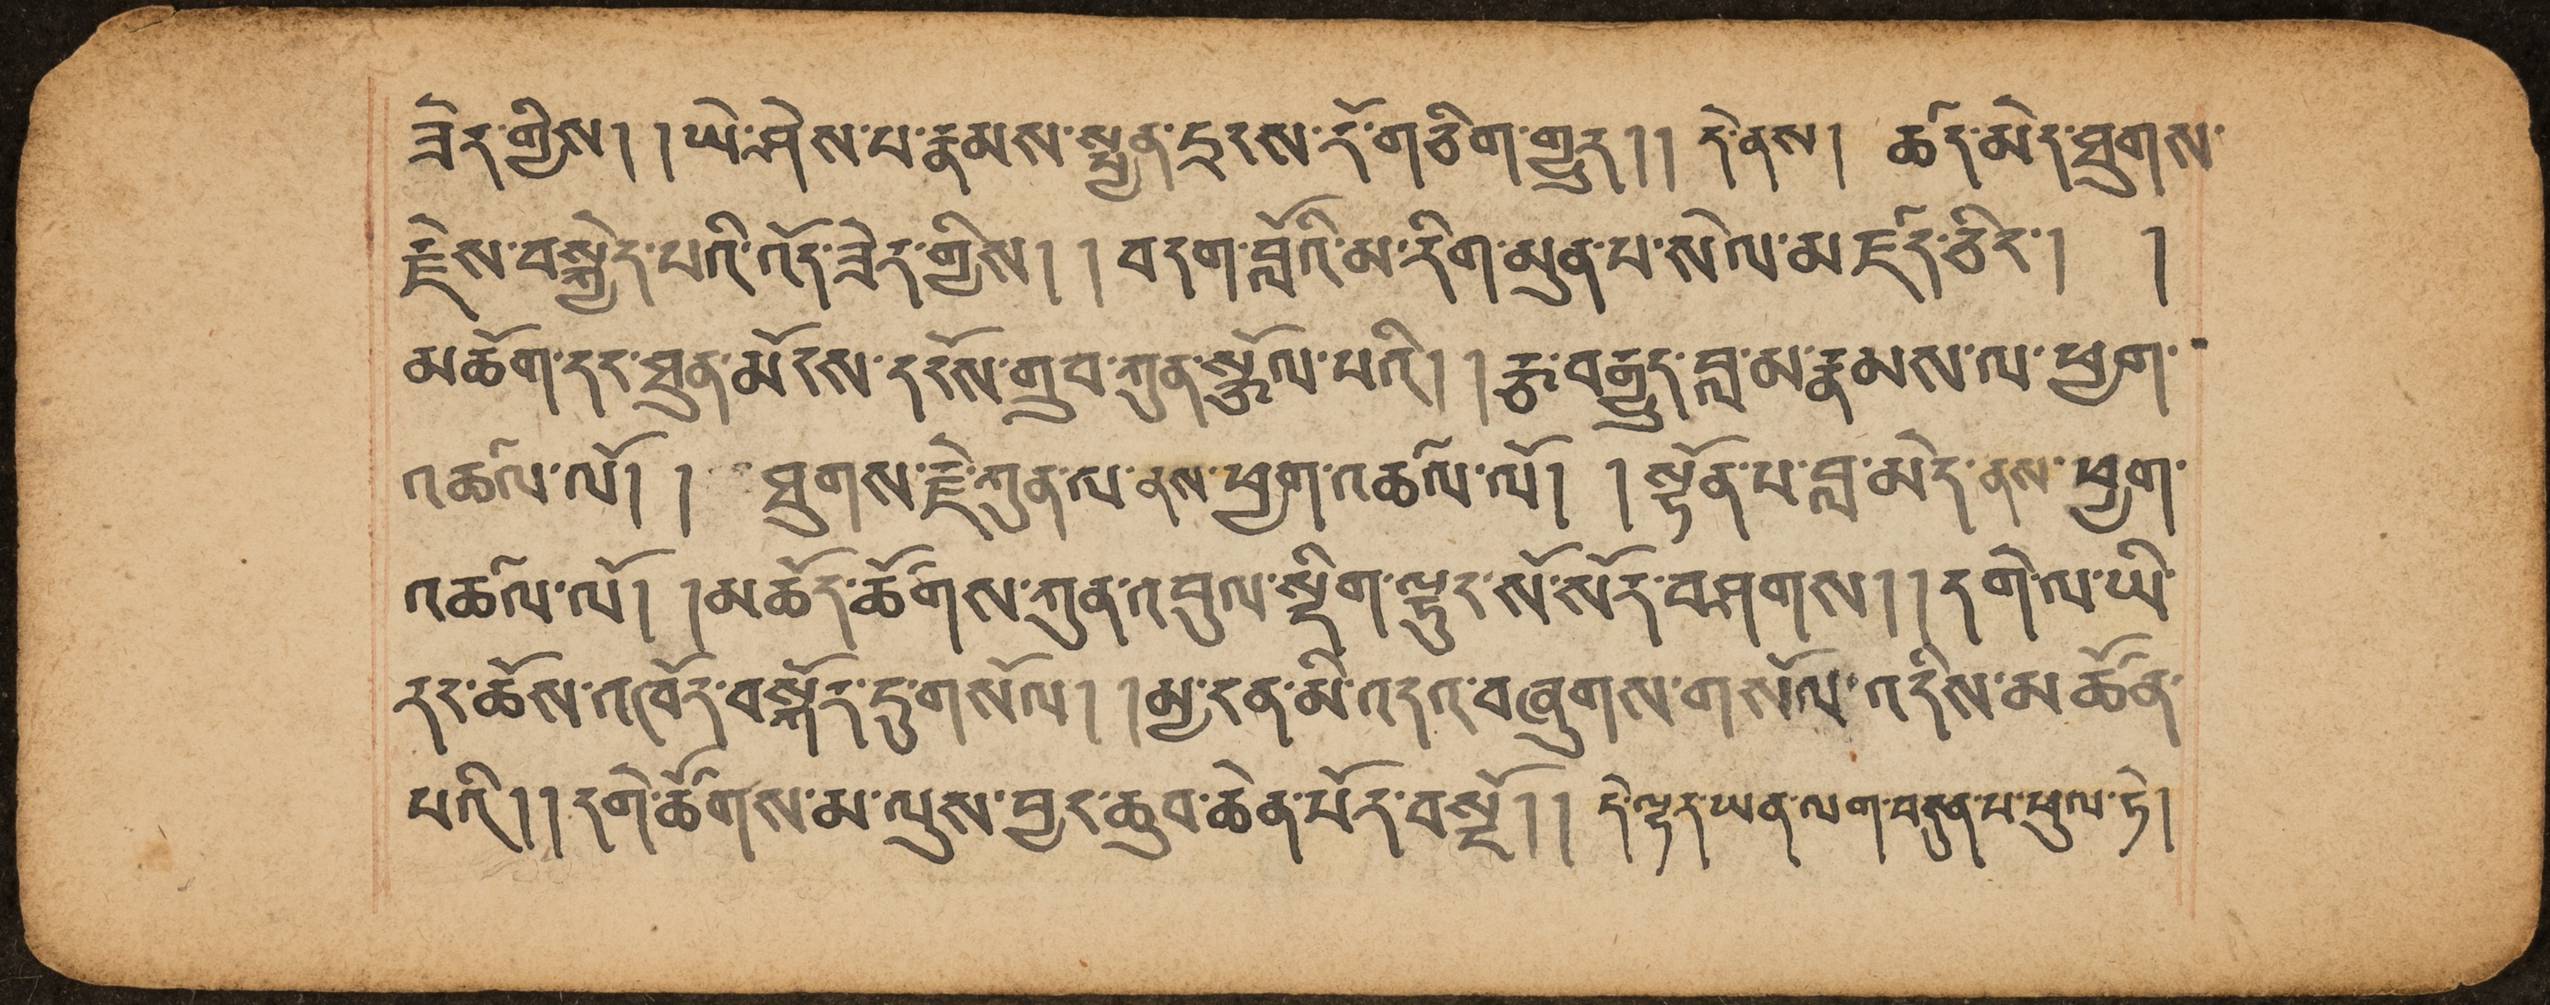 ཟེར་གྱིས། །ཡེ་ཤེས་པ་རྣམས་སྤྱན་དྲངས་རོ་གཅིག་གྱུར།། དེ་ནས། ཚད་མེད་ཐུགས་
རྗེས་བསྐྱེད་པའི་འོད་ཟེར་གྱིས། །བདག་བློའི་མ་རིག་མུན་པ་སེལ་མཛད་ཅིང་། །
མཆོག་དང་ཐུན་མོངས་དངོས་གྲུབ་ཀུན་སྩོལ་པའི། །རྩ་བརྒྱུད་བླ་མ་རྣམས་ལ་ཕྱག་
འཚལ་ལོ། །ཐུགས་རྗེ་ཀུན་ལ་ནས་ཕྱག་འཚལ་ལོ། །སྟོན་པ་བླ་མེད་ནས་ཕྱག་
འཚལ་ལོ། །མཆོད་ཚོགས་ཀུན་འབུལ་སྡིག་ལྟུང་སོ་སོར་བཤགས།། དགེ་ལ་ཡི་
རང་ཆོས་འཁོར་བསྐོར་དུ་གསོལ། །མྱ་ངན་མི་འདའ་བཞུགས་གསོལ་འདིས་མཚོན་
པའི།། དགེ་ཚོགས་མ་ལུས་བྱང་ཆུབ་ཆེན་པོར་བསྔོ།། དེ་ལྟར་ཡན་ལག་བདུན་པ་ཕུལ་ཏེ།